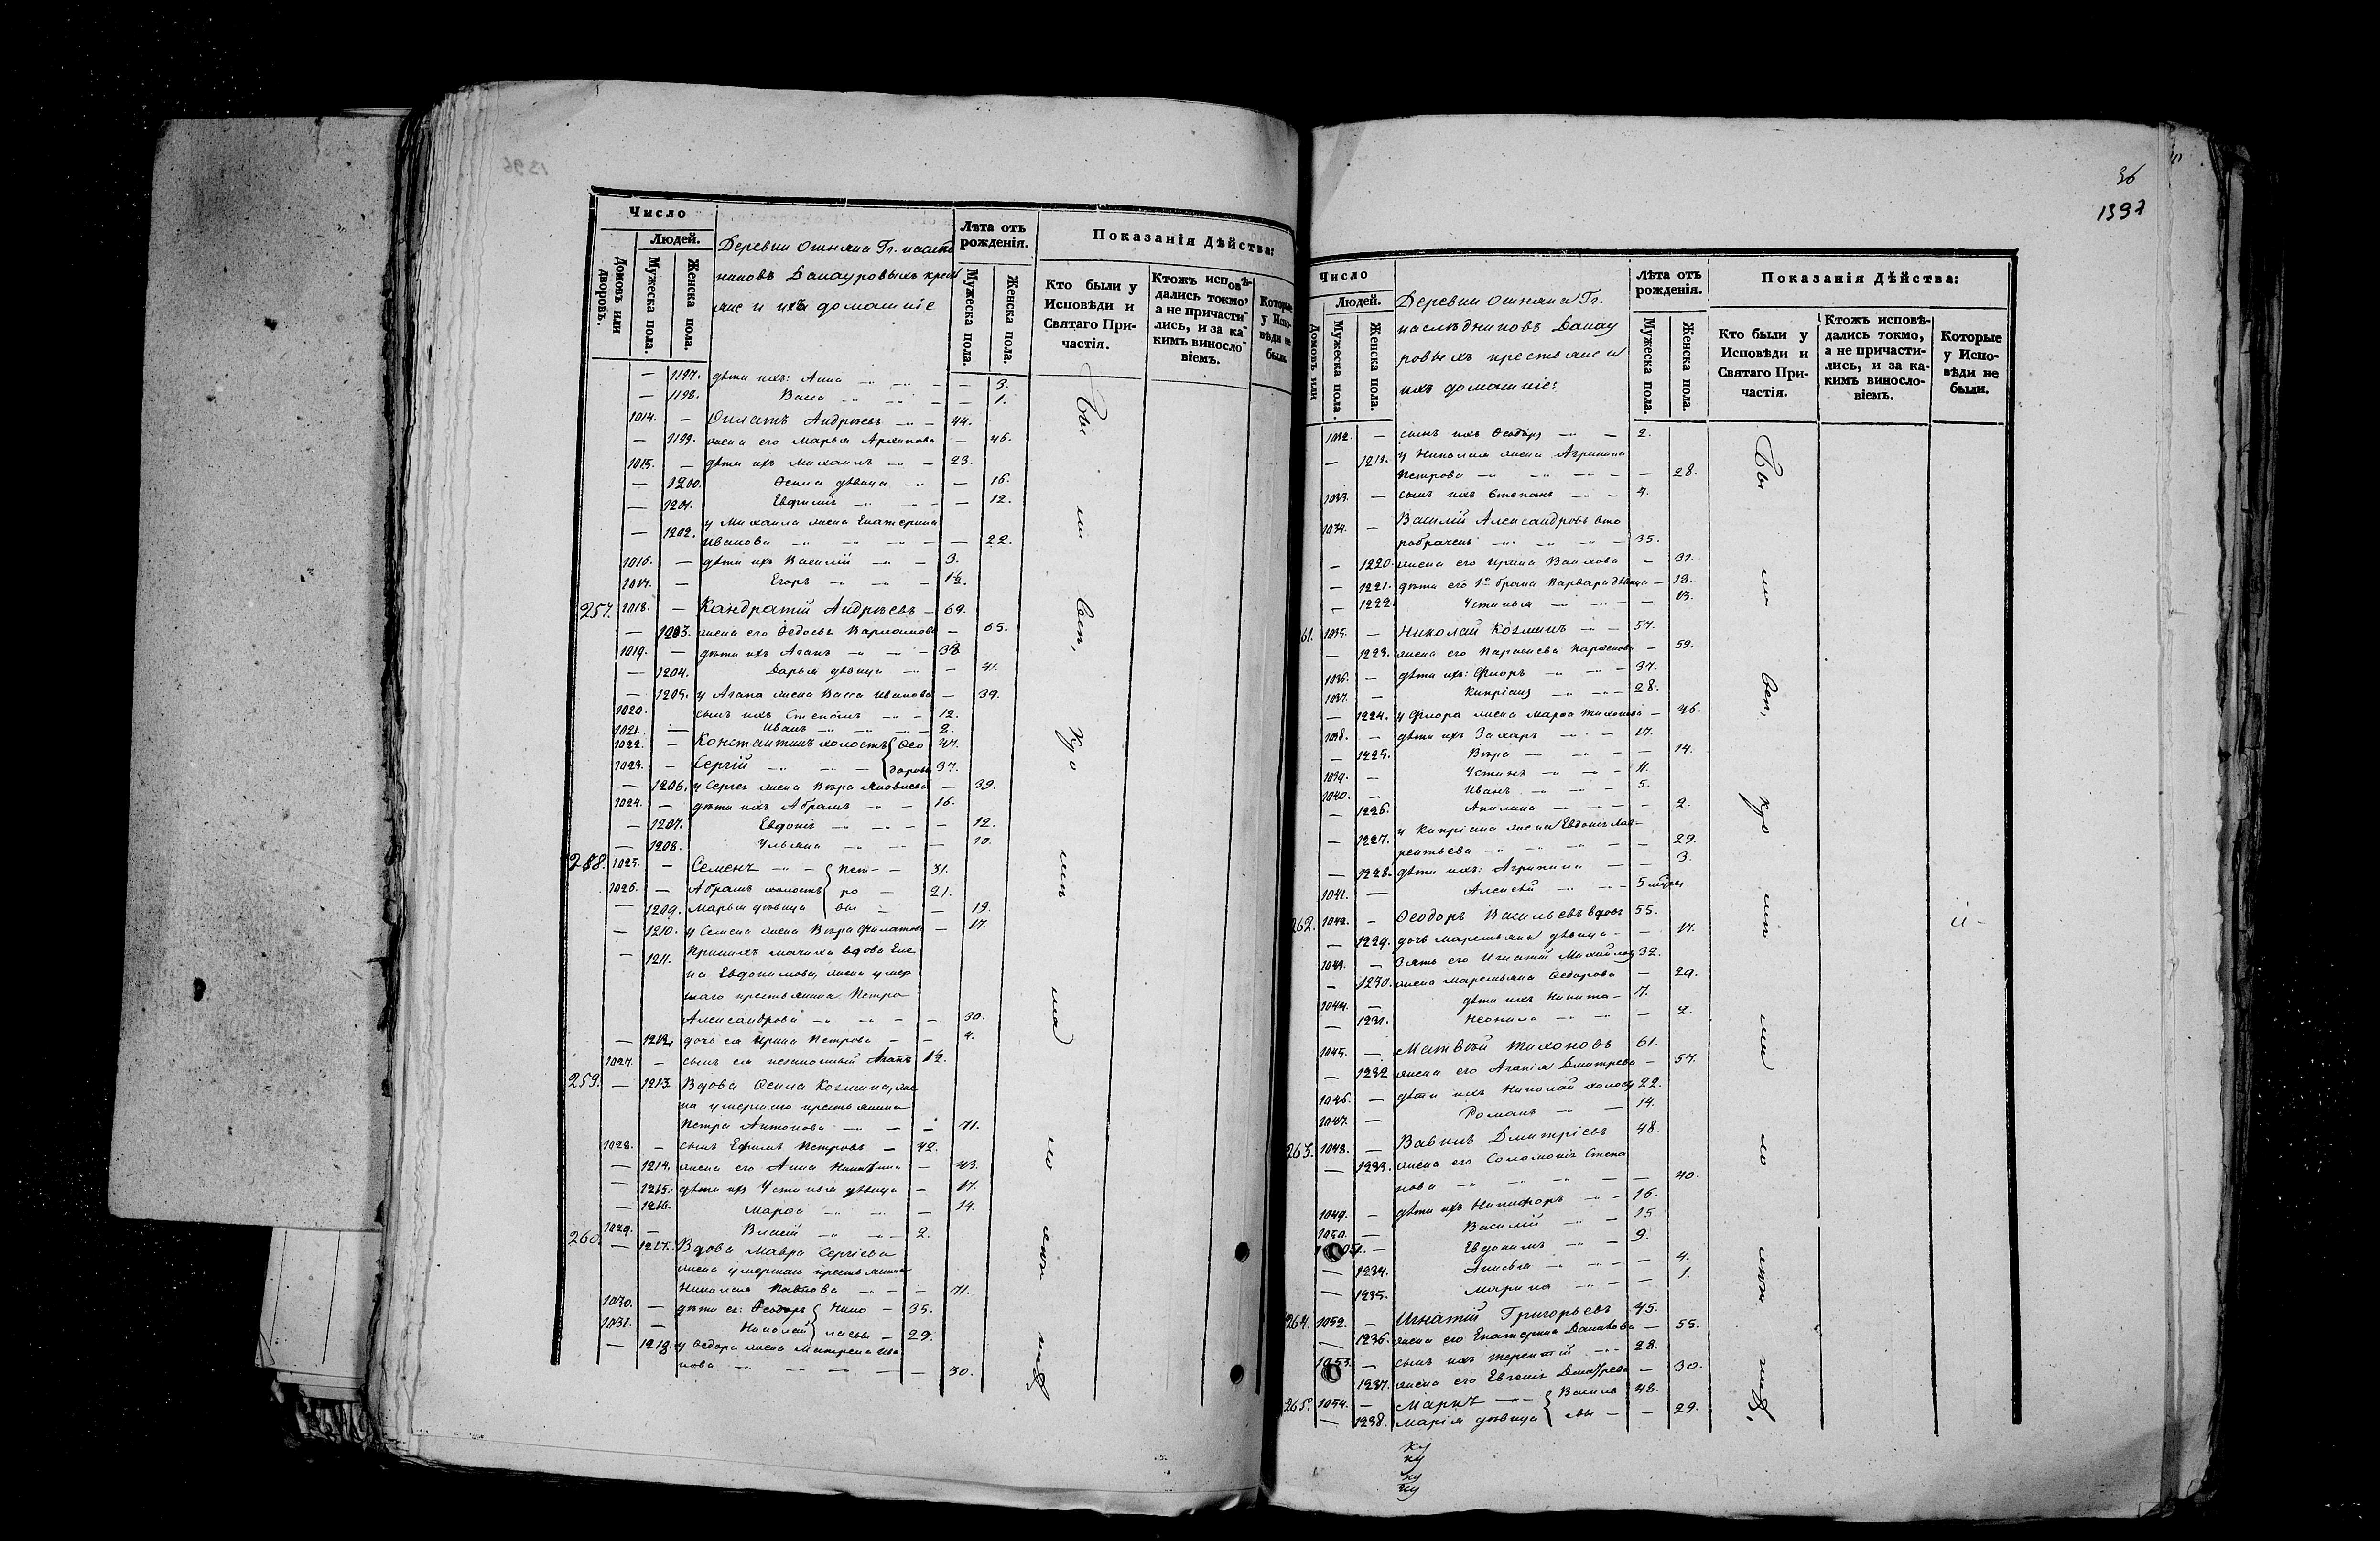 Число
Людей.
Домовъ или дворовъ.
Мужеска пола.
Женска пола.
Деревни
Гг.
и ихъ домашніе
Лѣта отъ рожденія.
Мужеска пола.
Женска пола.
Показанія Дѣйства:
Кто были у Исповѣди и Святаго Причастія.
Ктожъ исповѣдались токмо, а не причастились, и за какимъ винословіемъ.
Которые у Исповѣди не были.
— 1197. дѣти ихъ: Анна — 3.
— 1198. Васса — 1.
1014. — Филатъ Андреевъ 44.
— 1199. жена его Марья Архипова — 46.
1015. — дѣти ихъ Михаилъ 23.
— 1200. дѣвица — 16.
— 1201. Евфимія — 12.
— 1202. у Михаила жена Екатерина
Иванова — 22.
1016. — дѣти ихъ Василій 3.
1017. — Егоръ 1½.
257. 1018. — Кандратій Андреевъ 69.
— 1203. жена его Ѳедосья — 65.
1019. — дѣти ихъ Агапъ 38
— 1204. Дарья дѣвица — 41.
— 1205. у Агапа жена Васса Иванова — 39.
1020. сынъ ихъ Степанъ 12.
1021. — Иванъ 2.
1022. — Константинъ холостъ { Ѳео 47.
1023. — Сергій { доровы 37.
— 1206. у Сергея жена Вѣра Яковлева — 39.
1024. — дѣти ихъ Абрамъ 16.
— 1207. Евдокія — 12.
— 1208. Ульяна — 10.
258. 1025. — Семенъ { Пет 31.
1026. — Абрамъ холостъ { ро 21.
— 1209. Марья дѣвица { вы — 19.
— 1210. у Семена жена Вѣра Филатова — 17.
— 1211. мачиха вдова Еле
на Евдокимова, жена умер
шаго крестьянина Петра
Александрова — 30.
— 1212. дочь ея Ирина Петрова — 4.
1027. — сынъ ея незаконный Агапъ 1½.
259. — 1213. Вдова Козмина, же
на умершаго крестьянина
Петра Антонова — 71.
1028. — сынъ Ефимъ Петровъ 42.
— 1214. жена его Анна Никитина — 43.
— 1215. дѣти ихъ Устинья дѣвица — 17.
— 1216. Марѳа — 14.
1029. — Власій 2.
260. — 1217. Вдова Мавра Сергіева
жена умершаго крестьянина
Николая Павлова — 71.
1030. — дѣти ея: Ѳеодоръ { Нико 35.
1031. — Николай { лаевы 29.
— 1218. у Ѳедора жена Матрена Ива
нова — 30.
36
1397
Число
Людей.
Домовъ или
Мужеска пола.
Женска пола.
Деревни Гг.
наслѣдниковъ
ровыхъ крестьяне и
ихъ домашніе:
Лѣта отъ рожденія.
Мужеска пола.
Женска пола.
Показанія Дѣйства:
Кто были у Исповѣди и Святаго Причастія.
Ктожъ исповѣдались токмо, а не причастились, и за какимъ винословіемъ.
Которые у Исповѣди не были.
1032. — сынъ ихъ Ѳеодоръ 2.
— 1219. у Николая жена Агрипина
Петрова — 28.
1033. — сынъ ихъ Степанъ 4.
1034. — Василій Александровъ вто
робрачный 35.
— 1220. жена его Ирина — 37.
— 1221. дѣти его 1го брака Варвара дѣвица — 18.
— 1222. Устинья — 13.
61. 1035. — Николай Козминъ 57.
— 1223. жена его Парасковья — 59.
1036. — дѣти ихъ: Флоръ 37.
1037. — Кипріанъ 28.
— 1224. у Флора жена Марѳа Тихонова — 46.
1038. — дѣти ихъ Захаръ 17.
— 1225. Вѣра — 14.
1039. — Устинъ 11.
1040. — Иванъ 5.
— 1226. Акилина — 2.
— 1227. у Кипріана жена Евдокія Лав
рентьева — 29.
— 1228. дѣти ихъ: Агрипина — 3.
1041. — Алексѣй 5
262. 1042. — Ѳеодоръ Васильевъ вдовъ 55.
— 1229. дочь Маремьяна дѣвица — 17.
1043. — Зять его Игнатій Михайловъ 32.
— 1230. жена Маремьяна Ѳедорова — 29.
1044. — дѣти ихъ Никита 7.
— 1231. Неонила — 2.
1045. — Матвѣй Тихоновъ 61.
— 1232. жена его Агапія Дмитрева — 57.
1046. — дѣти ихъ Николай холостъ 22.
1047. — Романъ 14.
263. 1048. — Вавилъ Дмитріевъ 48.
— 1233. жена его Соломонія Степа
нова — 40.
1049. — дѣти ихъ Никифоръ 16.
1050. — Василій 15
1051. — Евдокимъ 9.
— 1234. Анисья — 4.
— 1235. Марина — 1.
264. 1052. — Игнатій Григорьевъ 45.
— 1236. жена его Екатерина — 55.
1053. — сынъ ихъ Терентій 28.
— 1237. жена его Евгенія Дмитрева — 30.
265. 1054. — Маркъ { Василь 48.
— 1238. Марія дѣвица { евы — 29.